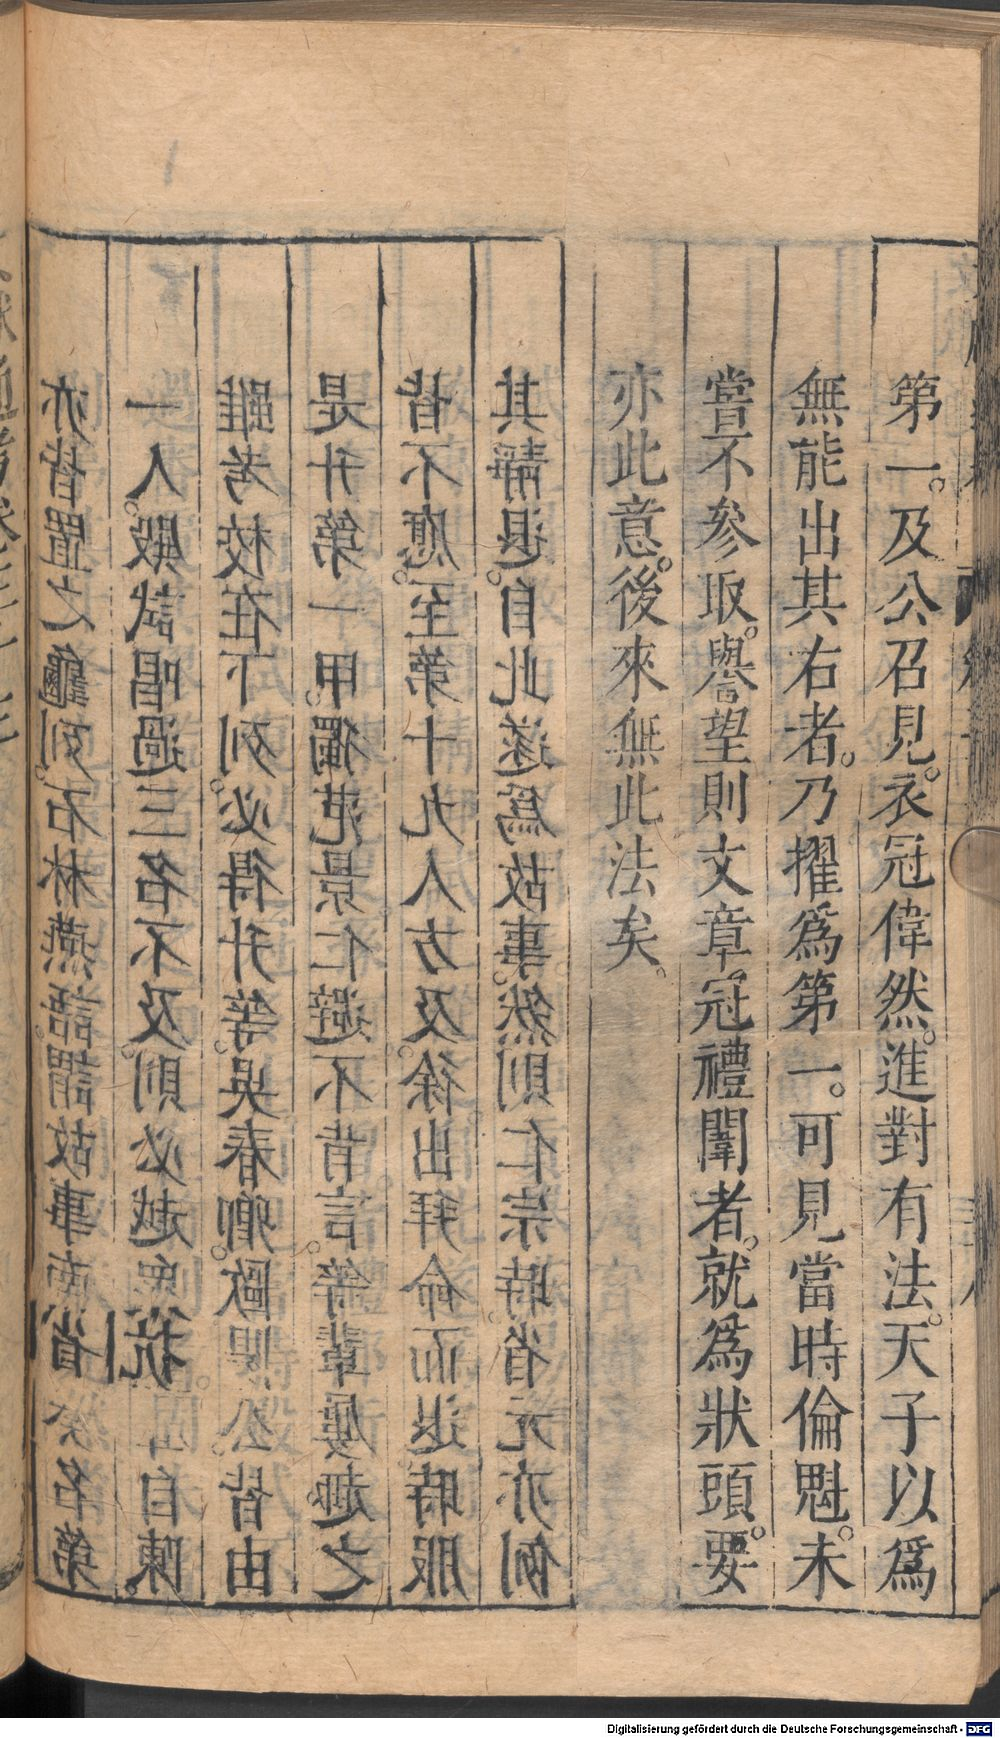 第一。及公召見。衣冠偉然。進對有法。天子以爲
無能出其右者。乃擢爲第一。可見當時倫魁。未
嘗不參取。譽望則文章冠禮闈者。就爲狀頭。要
亦此意。後來無此法矣。
亦皆置之龜列。石林燕語。謂故事南省奏名第
一人。殿試唱過三名不及。則必越衆抗自陳。
雖考校在下列。必得升等。吳春卿。歐陽公。皆由
是升第一甲。獨范景仁避不肯信。等輩屢趣之。
皆不應。至第十九人方及。徐出拜命而退。時服
其靜退。自此遂爲故事。然則仁宗時。省元亦例
Digitalisierung gefördert durch die Deutsche Forschungsgemeinschaft - DFG